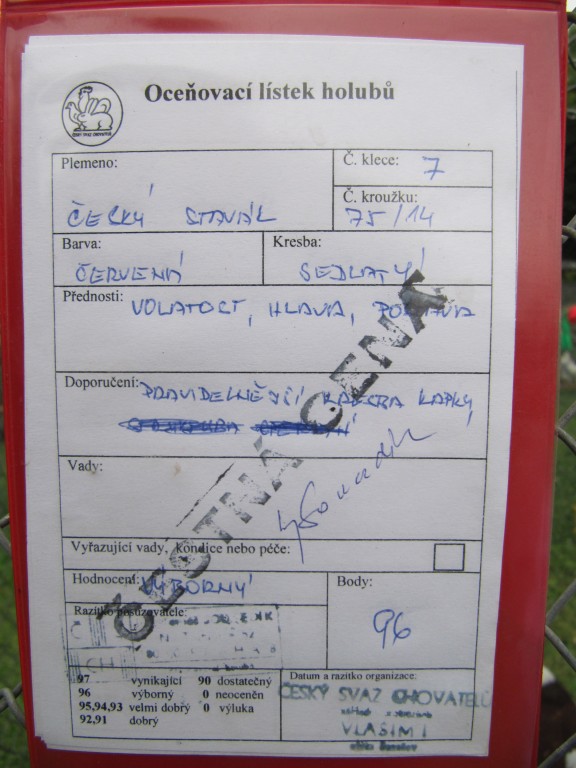 Oceňovací lístek holubů
Plemeno:
ČESKÝ STAVÁK
Č. klece: 7
Č. kroužku:
75/14
Barva:
ČERVENÁ
Kresba:
SEDLATÝ
Přednosti: VOLATOST, HLAVA, POSTAVA
Doporučení: PRAVIDELNĚJŠÍ KRESBA KAPKY
ČESTNÁ CENA
Vady:
Vyřazující vady, kondice nebo péče:
Hodnocení: VÝBORNÝ
Body:
96
Razítko posuzovatele:
97 vynikající 90 dostatečný
96 výborný 0 neoceněn
95,94,93 velmi dobrý 0 výluka
92,91 dobrý
Datum a razítko organizace:
ČESKÝ SVAZ CHOVATELŮ
VLAŠIM I